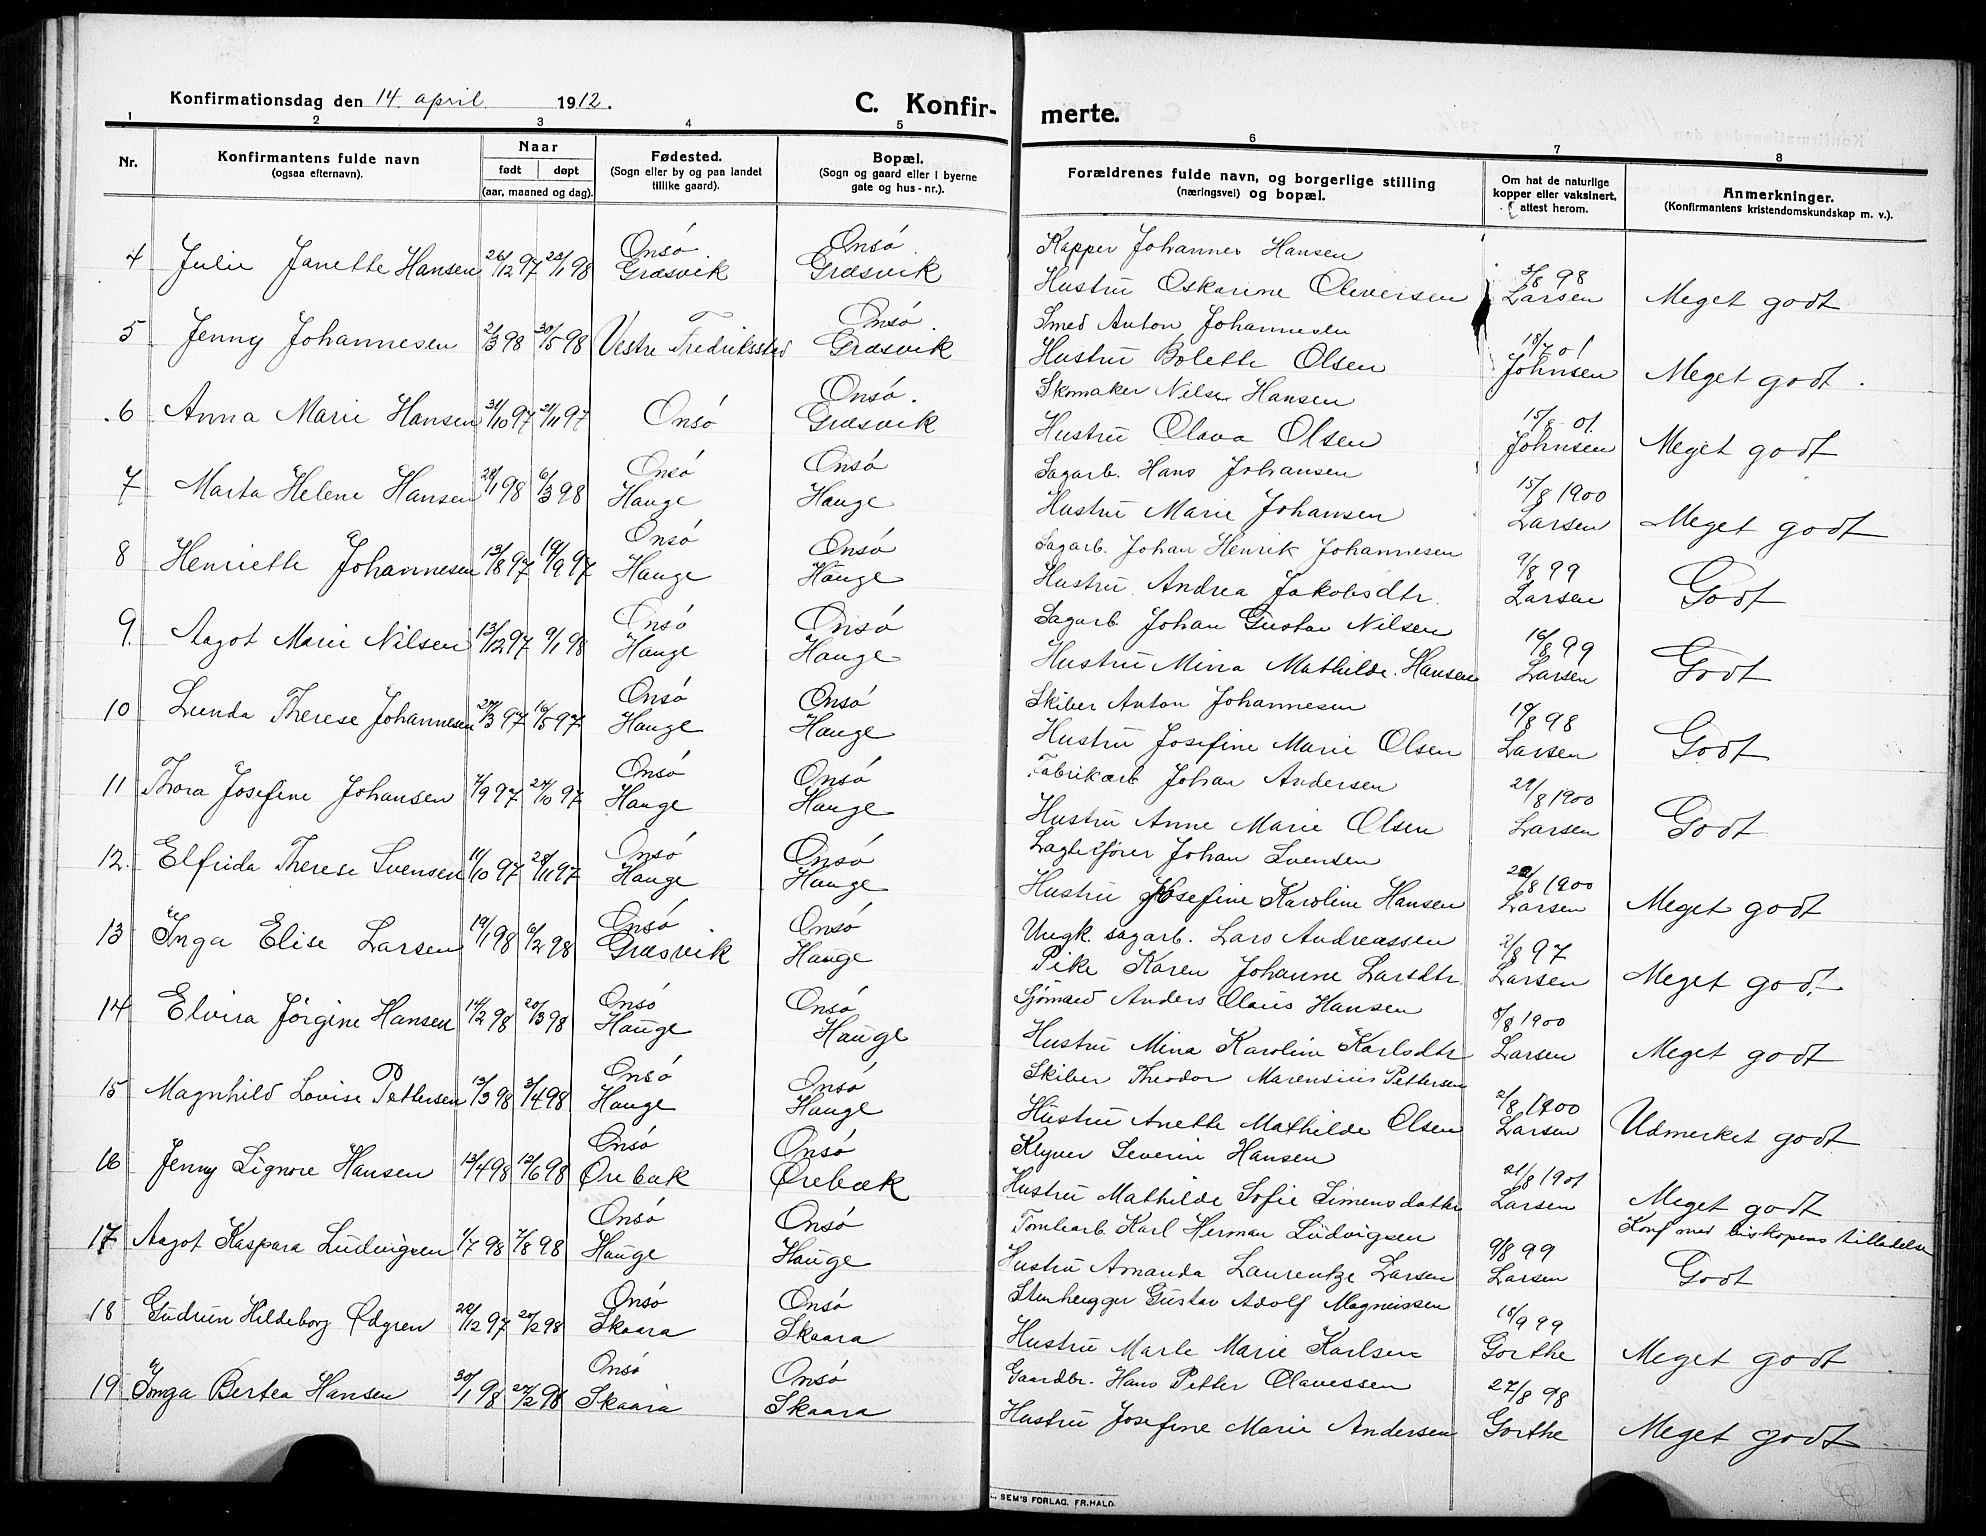 Konfirmationsdag den 14. april 1912.
C. Konfir- merte.
1 2 3 4 5 6 7 8
Nr.
Konfirmantens fulde navn
(ogsaa efternavn).
Naar
født døpt
(aar, maaned og dag).
Fødested.
(Sogn eller by og paa landet
tillike gaard).
Bopæl.
(Sogn og gaard eller i byerne
gate og hus-nr.).
Forældrenes fulde navn, og borgerlige stilling
(næringsvei) og bopæl.
Om hat de naturlige
kopper eller vaksinert,
attest herom.
Anmerkninger.
(Konfirmantens kristendomskundskap m. v.).
4 Julie Janette Hansen 26/12 97 23/1 98 Onsö Græsvik Onsö Græsvik Kapper Johannes Hansen
Hustru Oskarine Oliversen 3/8 98 Larsen Meget godt
5 Jenny Johannesen 2/3 98 30/5 98 Vestre Fredriksstad Onsö Græsvik Smed Anton Johannesen
Hustru Bolette Olsen 18/7 01 Johnsen Meget godt.
6 Anna Marie Hansen 31/10 97 21/11 97 Onsö Onsö. Græsvik Skomaker Nils Hansen
Hustru Olava Olsen 15/8 01. Johnsen Meget godt
7 Marta Helene Hansen 28/1 98 6/3 98 Onsö Hauge Onsö Hauge Sagarb. Hans Johansen
Hustru Marie Johansen 15/8 1900 Larsen Meget godt
8 Henriette Johannesen 13/8 97 19/9 97 Onsö Hauge Onsö Hauge Sagarb. Johan Henrik Johannesen
Hustru Andrea Jakobsdtr. 9/8 99 Larsen Godt
9. Aagot Marie Nilsen 13/12 97 9/1 98 Onsö Hauge Onsö Hauge Sagarb. Johan Gustav Nilsen
Hustru Mina Mathilde Hansen 16/8 99 Larsen Godt
10 Lunda Therese Johannesen 27/3 97 16/5 97 Onsö Hauge Onsö Hauge Skiber Anton Johannesen
Hustru Josefine Marie Olsen 19/8 98 Larsen Godt
11 Thora Josefine Johansen 7/9 97 24/10 97 Onsö Hauge Onsö Hauge Fabrikarb Johan Andersen
Hustru Anne Marie Olsen 21/8 1900 Larsen Godt
12. Elfrida Therese Svensen 11/10 97 28/11 97 Onsö Hauge Onsö Hauge Johan Svensen
Hustru Josefine Karoline Hansen 22/8 1900 Larsen Meget godt
13 Inga Elise Larsen 19/1 98 6/2 98 Onsö Græsvik Onsö Hauge Ungk. sagarb. Lars Andreassen
Pike Karen Johanne Larsdtr. 2/8 97 Larsen Meget godt.
14 Elvira Jörgine Hansen 14/2 98 20/3 98 Onsö Hauge Onsö Hauge Sjömand Anders Olaus Hansen
Hustru Mina Karoline Karlsdtr 8/8 1900 Larsen Meget godt
15 Magnhild Lovise Pettersen 13/3 98 3/4 98 Onsö Hauge Onsö Hauge Skiber Theodor Marensius Pettersen
Hustru Anette Mathilde Olsen 2/8 1900 Larsen Udmerket godt
16 Jenny Signore Hansen 13/4 98 12/6 98 Onsö Örebæk Onsö Örebæk Klyver Severin Hansen
Hustru Mathilde Sofie Simensdatter 21/8 1901 Larsen Meget godt
17 Aagot Kaspara Ludvigsen 1/7 98 7/8 98 Onsö Hauge Onsö Hauge Tomtearb. Karl Herman Ludvigsen Konf med biskopens tilladelse
Hustru Amanda Laurentze Larsen 9/8 99 Larsen Godt
18 Gudrun Hildeborg Ödgren 22/12 97 20/2 98 Onsö Skaara Onsö Skaara Stenhugger Gustav Adolf Magnussen
Hustru Marle Marie Karlsen 18/9 99 Gorthe Meget godt
19 Inga Bertea Hansen 30/1 98 27/2 98 Onsö Skaara Onsö Skaara Gaardbr. Hans Petter Olavessen
Hustru Josefine Marie Andersen 27/8 98 Gorthe Meget godt
SEM'S FORLAG, FR.HALD.